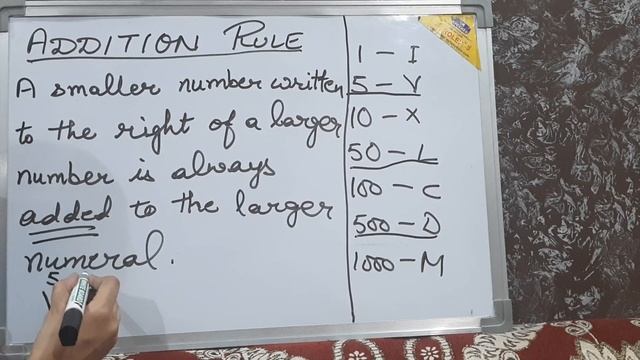 ADDITION RULE
A smaller number written
to the right of a larger
number is always
added to the larger
numeral.
5
V
1 - I
5 - V
10 - X
50 - L
100 - C
500 - D
1000 - M